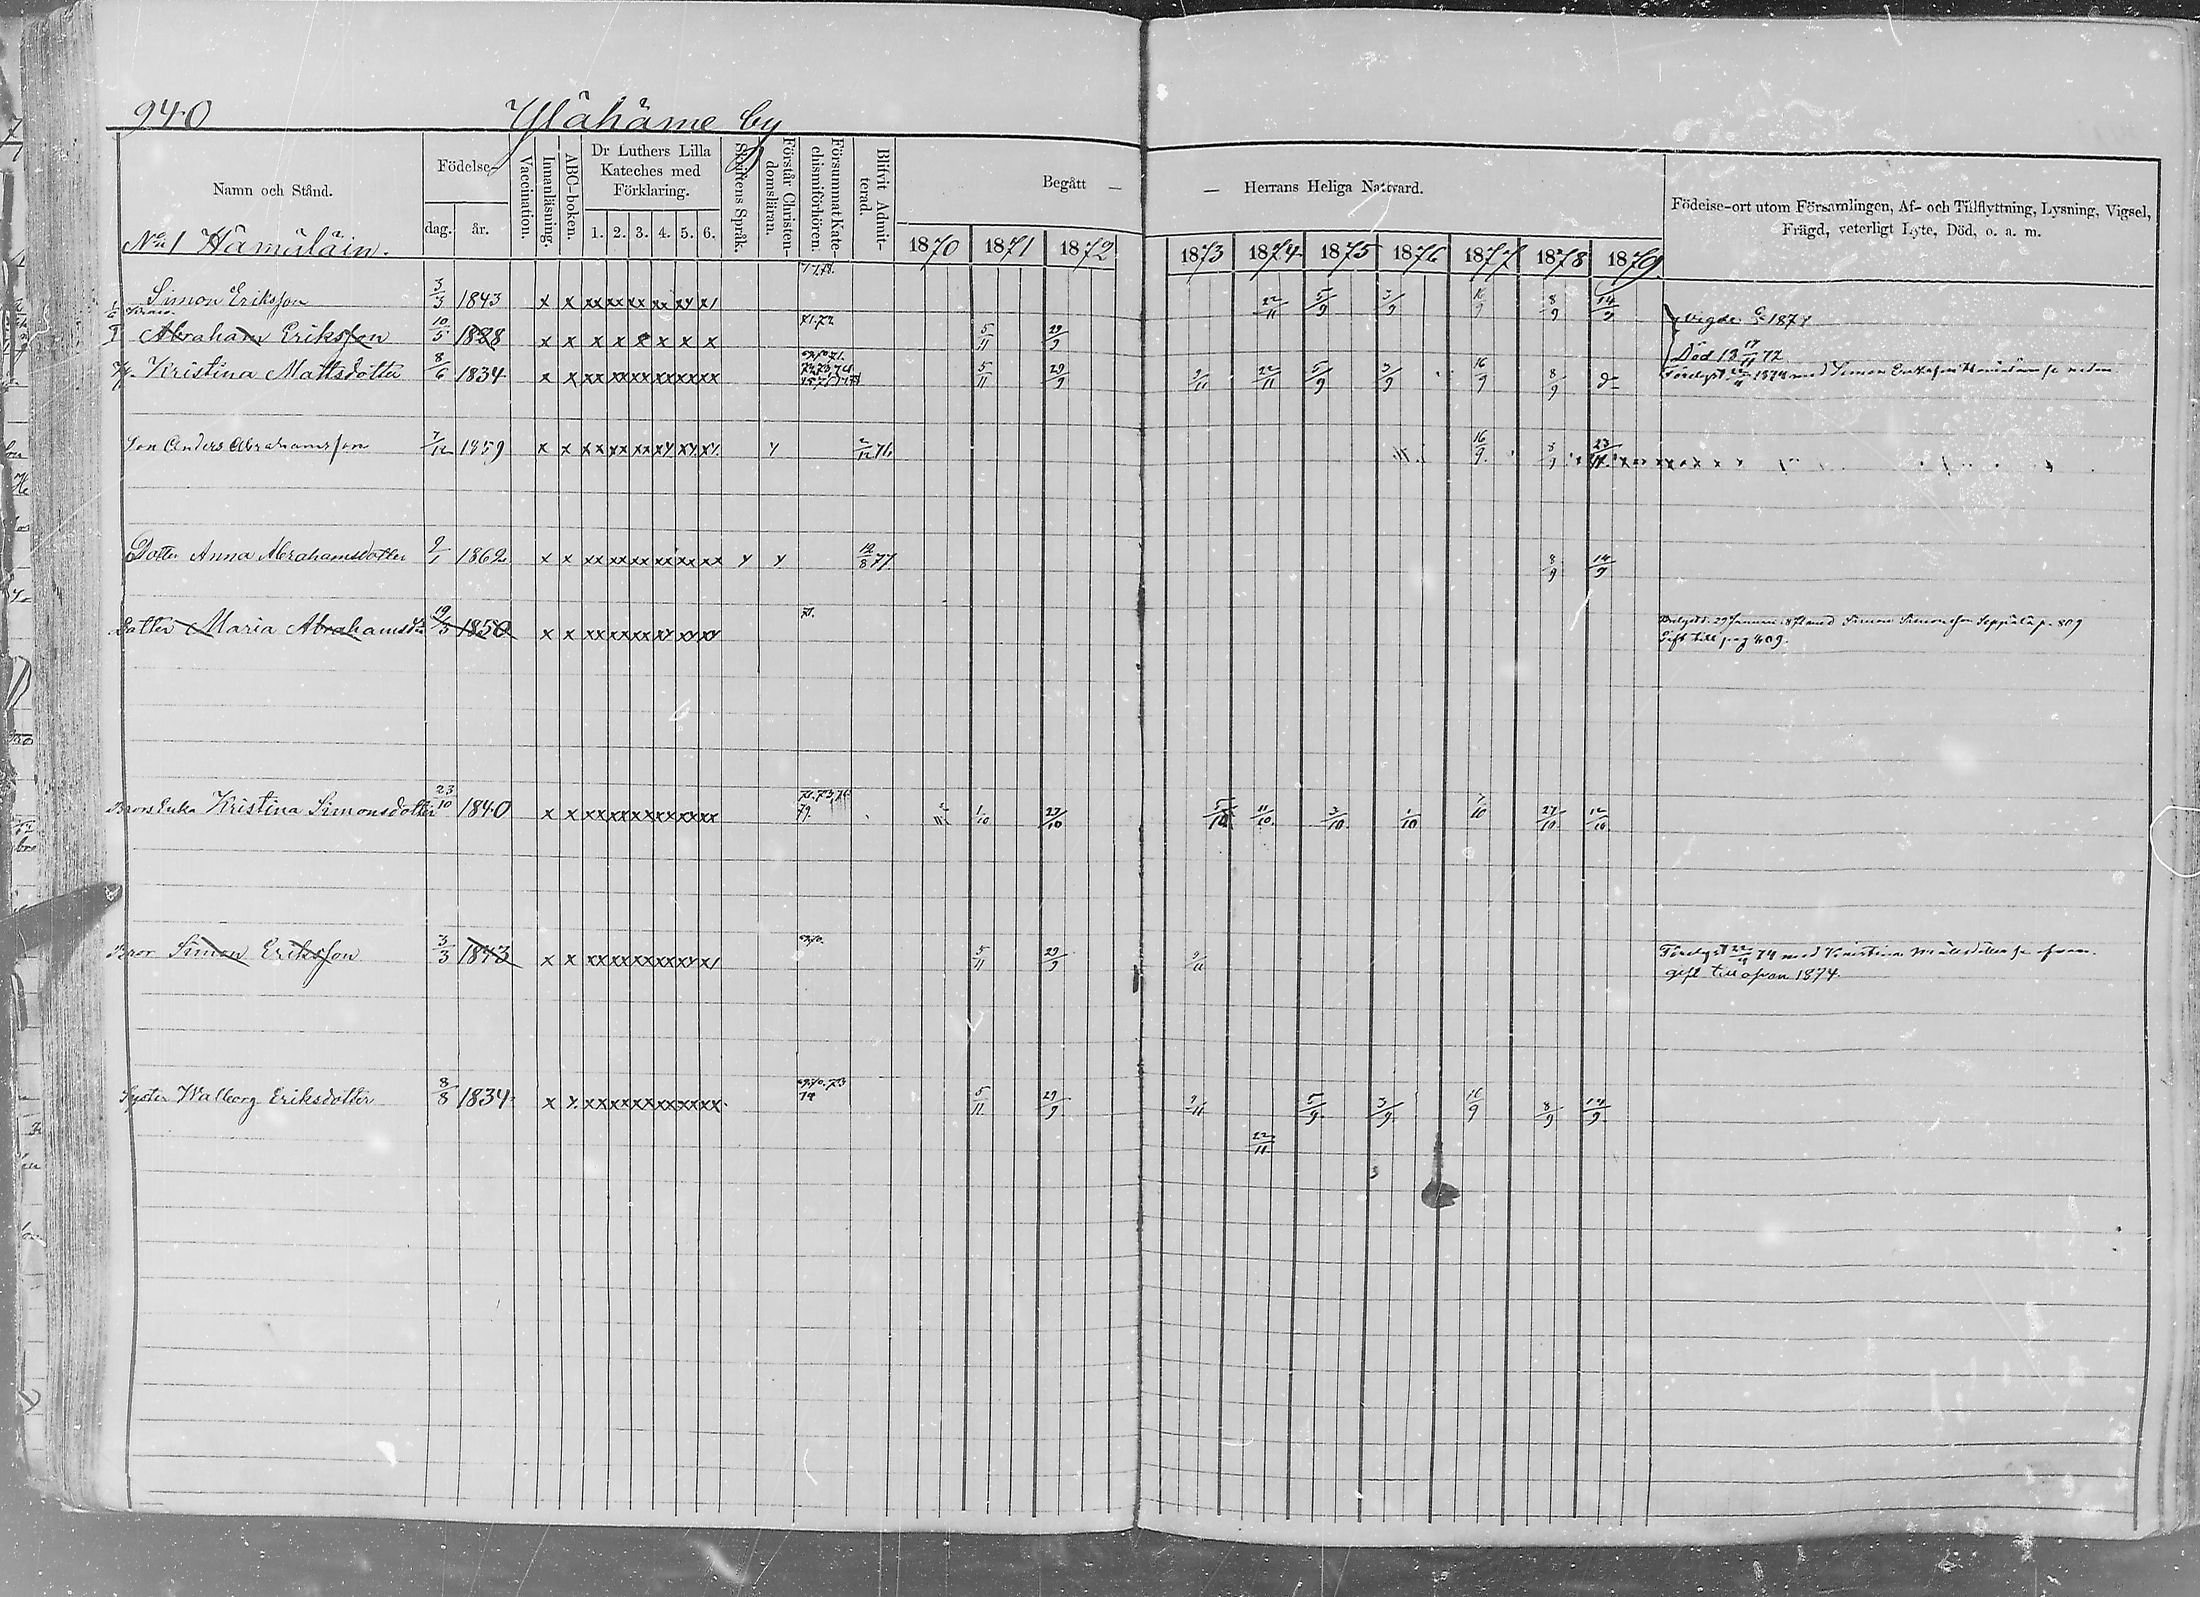 940 Ylähäme by
Namn och Stånd. Födelse- dag. år. Vaccination. Innanläsning. ABC-boken. Dr Luthers Lilla Kateches med Förklaring. 1. 2. 3. 4. 5. 6. Skriftens Språk. Förstår Christendomsläran. Försummat Katechismiförhören. Blifvit Admitterad. Begått — — Herrans Heliga Nattvard. Födelse-ort utom Församlingen, Af- och Tillflyttning, Lysning, Vigsel, Frägd, veterligt Lyte, Död, o. a. m.
1870 1871 1872 1873 1874 1875 1876 1877 1878 1879
No 1 Hämäläin.
Simon Eriksson 3/3 1843 x x xx xx xx xx xy x1 22/11 5/9 3/9 16/9 8/9 14/9
Abraham Eriksson 10/5 1828 x x x x x x x 71.72 5/11 29/9 Död 13 17/11 72
Kristina Mattsdotter 8/6 1834 x x xx xx xx xx xx xx 5/11 29/9 9/11 22/11 5/9 3/9 16/9 8/9
Son Anders Abrahamsson 7/12 1859 x x xx xx xx xy xy xy y 2/12 76 16/9 8/9 23/11
Dotter Anna Abrahamsdotter 9/1 1862 x x xx xx xx xx xx xx y y 12/8 77. 8/9 14/9
Dotter Maria Abrahamsd:r 19/3 1850 x x xx xx xx xx xy xy 71. 29 Januari med Simon Simonsson Seppälä p. 809
Gift till pag 809.
Brors Enka Kristina Simonsdotter 23/10 1840 x x xx xx xx xx xx xx 79. 1/10 27/10 5/10 11/10 3/10 1/10 7/10 27/10 12/10
Bror Simon Eriksson 3/3 1843 x x xx xx xx xx xy x1 69.70. 5/11 29/9 9/11 22/11 74 med Kristina Mattsdotter
gift till ofvan 1874.
Syster Walborg Eriksdotter 8/8 1834 x x xx xx xx xx xx xx 69.70.73 5/11 29/9 9/11 5/9 3/9 16/9 8/9 14/9
22/11